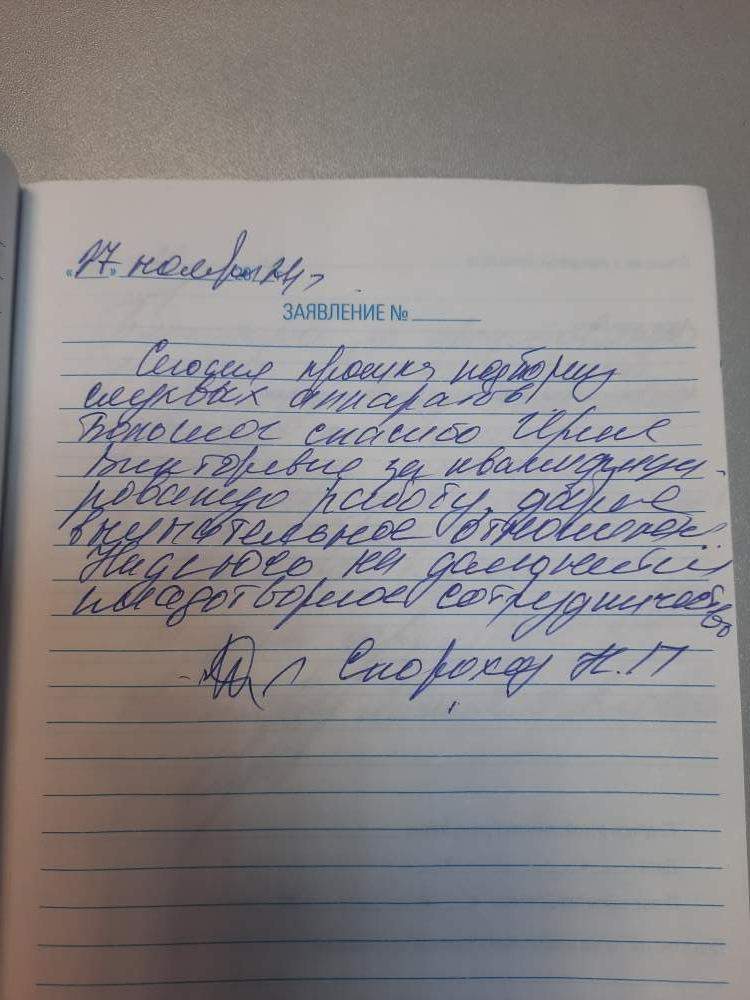 «27» ноября 24 г
ЗАЯВЛЕНИЕ №
Сегодня прошла подборку
слуховых аппаратов
Большое спасибо
Викторовне за квалифици-
рованную работу, доброе
внимательное отношение.
Надеюсь на дальнейшее
плодотворное сотрудничество
Скороход Н.П